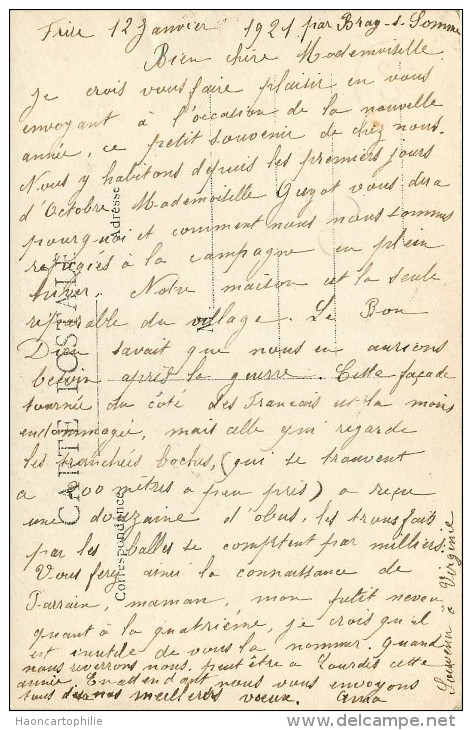 Frise 12 Janvier 1921 par Bray-s-Somme
Bien chère Mademoiselle
Je crois vous faire plaisir en vous
envoyant à l'occasion de la nouvelle
année, ce petit souvenir de chez nous.
Nous y habitons depuis les premiers jours
d'Octobre. Mademoiselle Guyot vous dira
pourquoi et comment nous nous sommes
refugiés à la campagne en plein
hiver. Notre maison est la seule
réparable du village. Le Bon
Dieu savait que nous en aurions
besoin après la guerre. Cette façade
tournée du côté des Francais est la moins
endommagée, mais celle qui regarde
les tranchées boches, (qui se trouvent
à 400 mètres à peu près) a reçu
une douzaine d'obus, les trous fait
par les balles se comptent par milliers.
Vous ferez ainsi la connaissance de
Parrain, maman, mon petit neveu
quant à la quatrième, je crois qu'il
est inutile de vous la nommer. Quand
nous reverrons nous, peut être à Lourdes cette
année. En attendant nous vous envoyons
tous nos meilleurs vœux.
Souvenir à Virginie
CARTE POSTALE
Correspondance
Adresse
Haoncartophilie